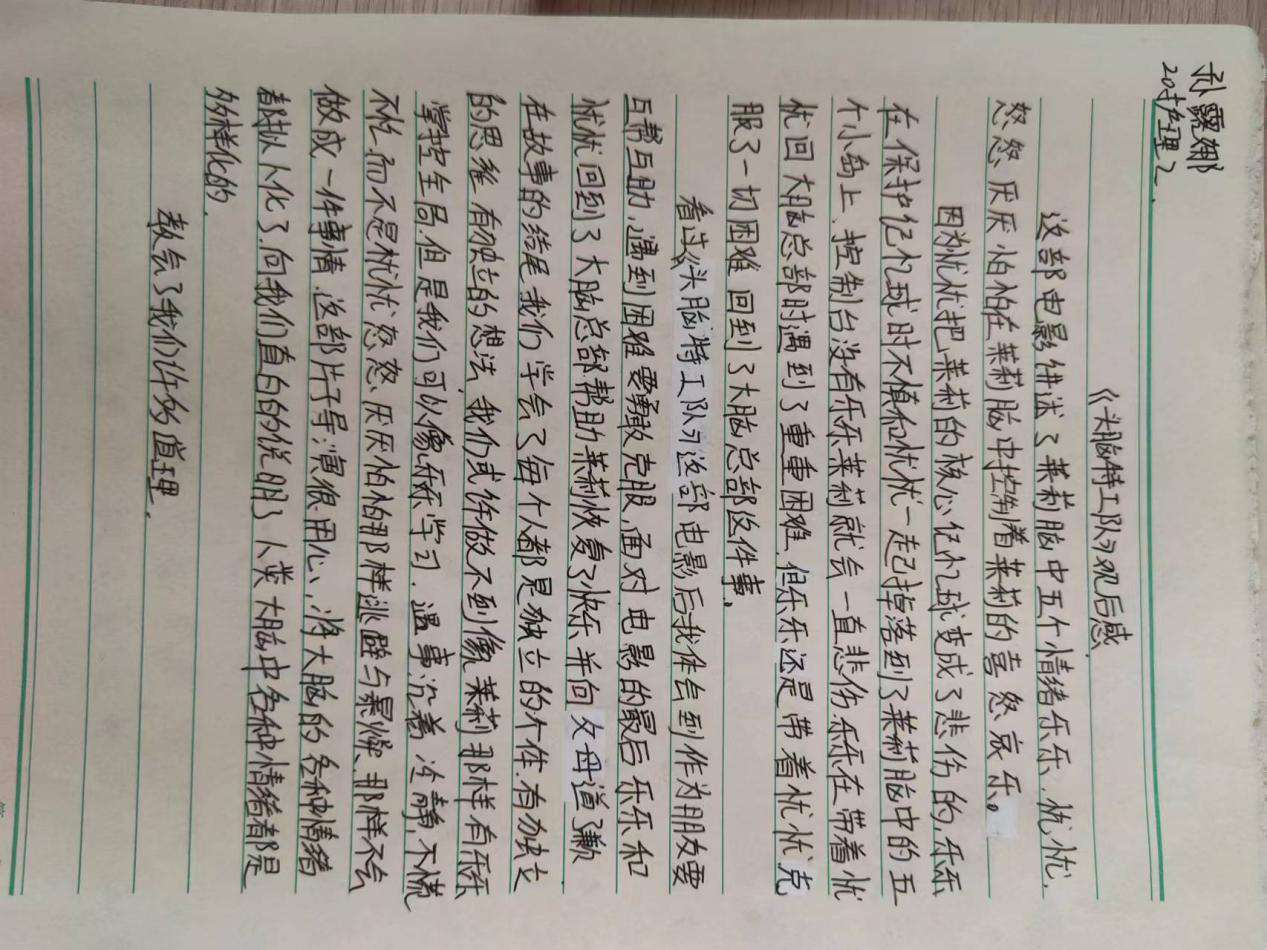 露娜
20护理2.
《头脑特工队》观后感.
这部电影讲述了莱莉脑中五个情绪乐乐、忧忧、
怒怒、厌厌、怕怕在莱莉脑中控制着莱莉的喜怒哀乐。
因为忧忧把莱莉的核心记忆球变成了悲伤的,乐乐
在保护记忆球时不慎和忧忧一起掉落到了莱莉脑中的五
个小岛上、控制台没有乐乐莱莉就会一直悲伤乐乐在带着忧
忧回大脑总部时遇到了重重困难、但乐乐还是带着忧忧克
服了一切困难回到了大脑总部这件事。
看过《头脑特工队》这部电影后我体会到作为朋友要
互帮互助、遇到困难要勇敢克服,面对电影的最后乐乐和
忧忧回到了大脑总部帮助莱莉恢复了快乐并向父母道了歉
在故事的结尾我们学会了每个人都是独立的个体.有独立
的思维有独立的想法,我们或许做不到像莱莉那样有乐乐
掌控全局.但是我们可以像乐乐学习.遇事沉着冷静,不慌
不忙而不是忧忧、怒怒、厌厌怕怕那样逃避与暴燥、那样不会
做成一件事情.这部片子导演很用心,将大脑的各种情绪
都拟人化了.向我们直白的说明了人类大脑中各种情绪都是
多样化的.
教会了我们许多道理.